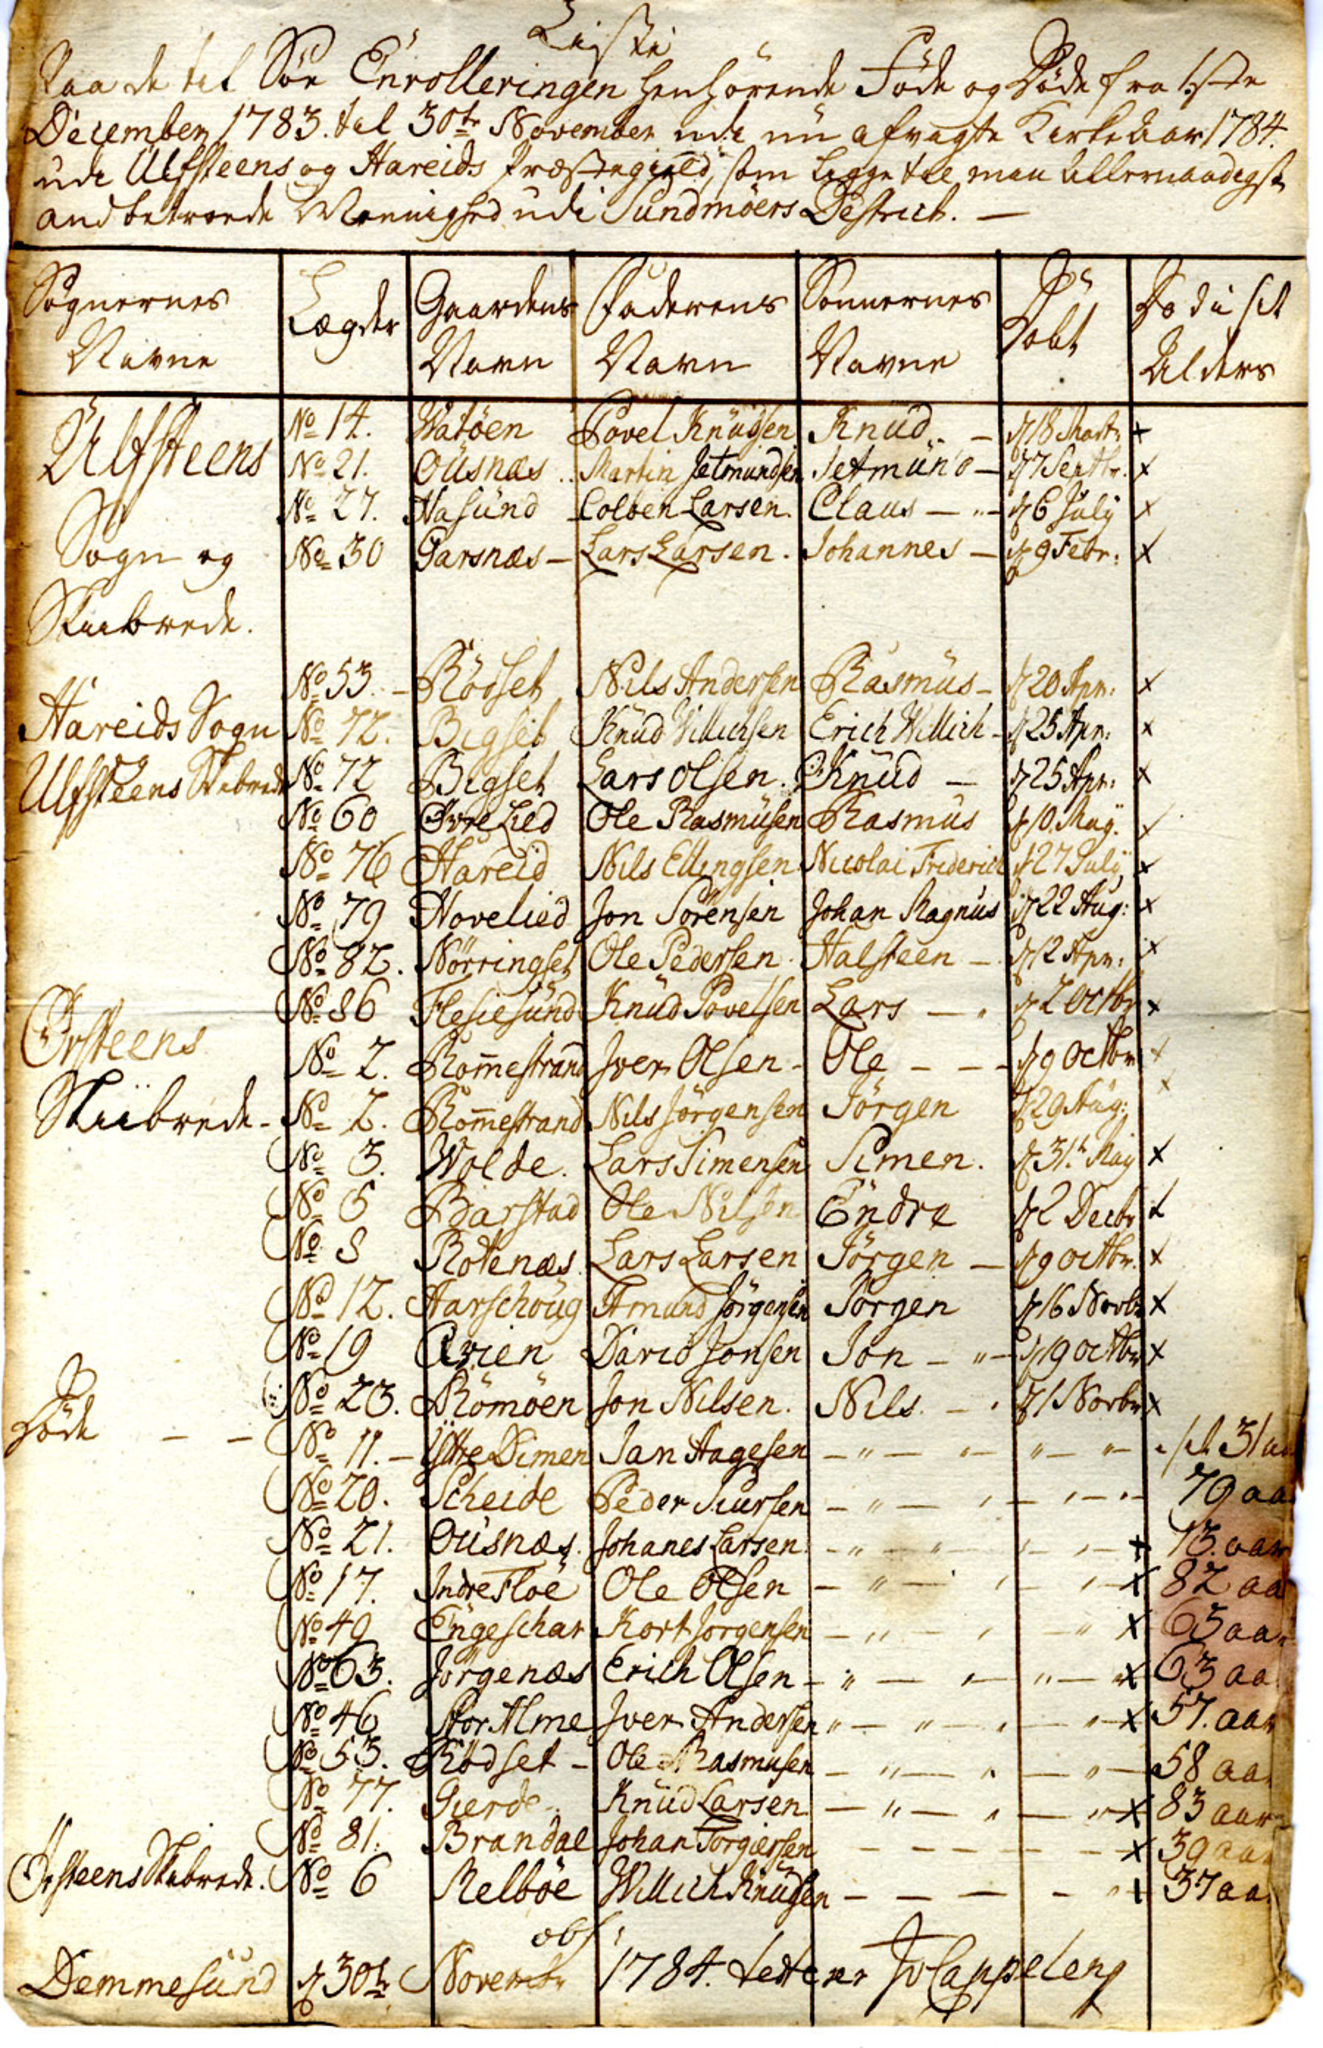 Liste
Paa de til Söe Enrolleringen henhörende Föde og Döde fra 1ste
December 1783. til 30te November udi nu afvigte Kirke Aar 1784.
udi Ulfsteens og Hareids Præstegield, som ligge til min Allernaadigst
andbetroede Myndighed udi Sundmöers District. —
Sognernes Navne | Lægder | Gaardens Navn | Faderens Navn | Sønnernes Navne | Döbt | Döde i sit Alders
Ulfsteens | No 14. | Watöen | Povel Knudsen | Knud „ — | d 18 Marti | x
No 21. | Ousnæs .. | Martin Jetmundsen | Jetmund — | d 7 Septbr. | x
No 27. | Hasund | Colben Larsen. | Claus — „ — | d 6 July | x
Sogn og | No 30 | Garsnæs — | Lars Larsen. | Johannes — | d 9 Febr: | x
Skibrede.
No 53. — | Rödset | Nils Andersen | Rasmus — | d 20 Apr: | x
Hareids Sogn | No 72. | Bigset | Knud Willichsen | Erich Willich — | d 25 Apr: | x
Ulfsteens Skibrede | No 72 | Bigset | Lars Olsen. | Knud — | d 25 Apr: | x
No 60 | Øvre Lied | Ole Rasmusen | Rasmus | d 10. May. | x
No 76 | Hareid | Nils Ellingsen | Nicolai Friderich | d 27 July | x
No 79 | Hovelied | Jon Sörensen | Johan Magnus | d 22 Aug: | x
No 82. | Nörringset | Ole Pedersen. | Halsteen — | d 12 Apr: | x
No 86 | Flesiesund | Knud Povelsen | Lars — „ | d 2 Octbr | x
Ørsteens | No 2. | Rom̄estrand | Iver Olsen — | Ole — — — | d 9 Octbr | x
Skibrede — | No 2. | Rom̄estrand | Nils Jörgensen | Jörgen | d 29 Aug: | x
No 3. | Wolde. | Lars Simensen | Simen. | d 31te May | x
No 5 | Barstad | Ole Nilsen | Endre | d 2 Decbr | x
No 8 | Rotenæs | Lars Larsen | Jörgen — | d 9 Octbr. | x
No 12. | Aarschoug | Amund Jörgensen | Jörgen | d 16 Novbr | x
No 19 | Qvien | David Jonsen | Jon — „ — | d 19 Octbr | x
No 23. | Römöen | Jon Nilsen. | Nils. — „ | d 1 Novbr | x
Döde — — | No 11. — | Yttre Dimen | Jan Aagesen | — „ — „ — „ — „ | sit 31 aar
No 20. | Scheide | Peder Siursen | — „ — „ — „ — | 79 aar
No 21. | Ousnæs. | Johanes Larsen | — „ — „ — „ — | x 13. aar
No 17. | Indre Floe | Ole Olsen | — „ — „ — „ — | x 82 aar
No 49 | Engeschar | Kort Jörgensen | — „ — „ — „ | x 65 aar
No 63. | Jörgenæs | Erich Olsen | — „ — „ — „ — „ | x 63 aar
No 46 | Stor Alme | Iver Andersen | „ — „ — „ — „ | x 57. aar
No 53. | Rödset — | Ole Rasmusen | — „ — „ — „ — | 58 aar
No 77. | Gierde | Knud Larsen | — „ — „ — „ | x 83 aar
No 81. | Brandal | Johan Torgiersen | — — — — — — | x 39 aar
Ørsteens Skibrede. | No 6 | Melböe | Willich Knudsen | — — — — „ | x 37 aar
Demmesund d 30te Novembr 1784.